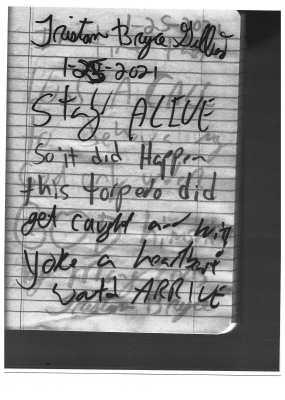 Tristan Bryce
1-25-2021
Stay ALIVE
So it did Happen
this torpedo did
get caught and
yoke a
would ARRIVE